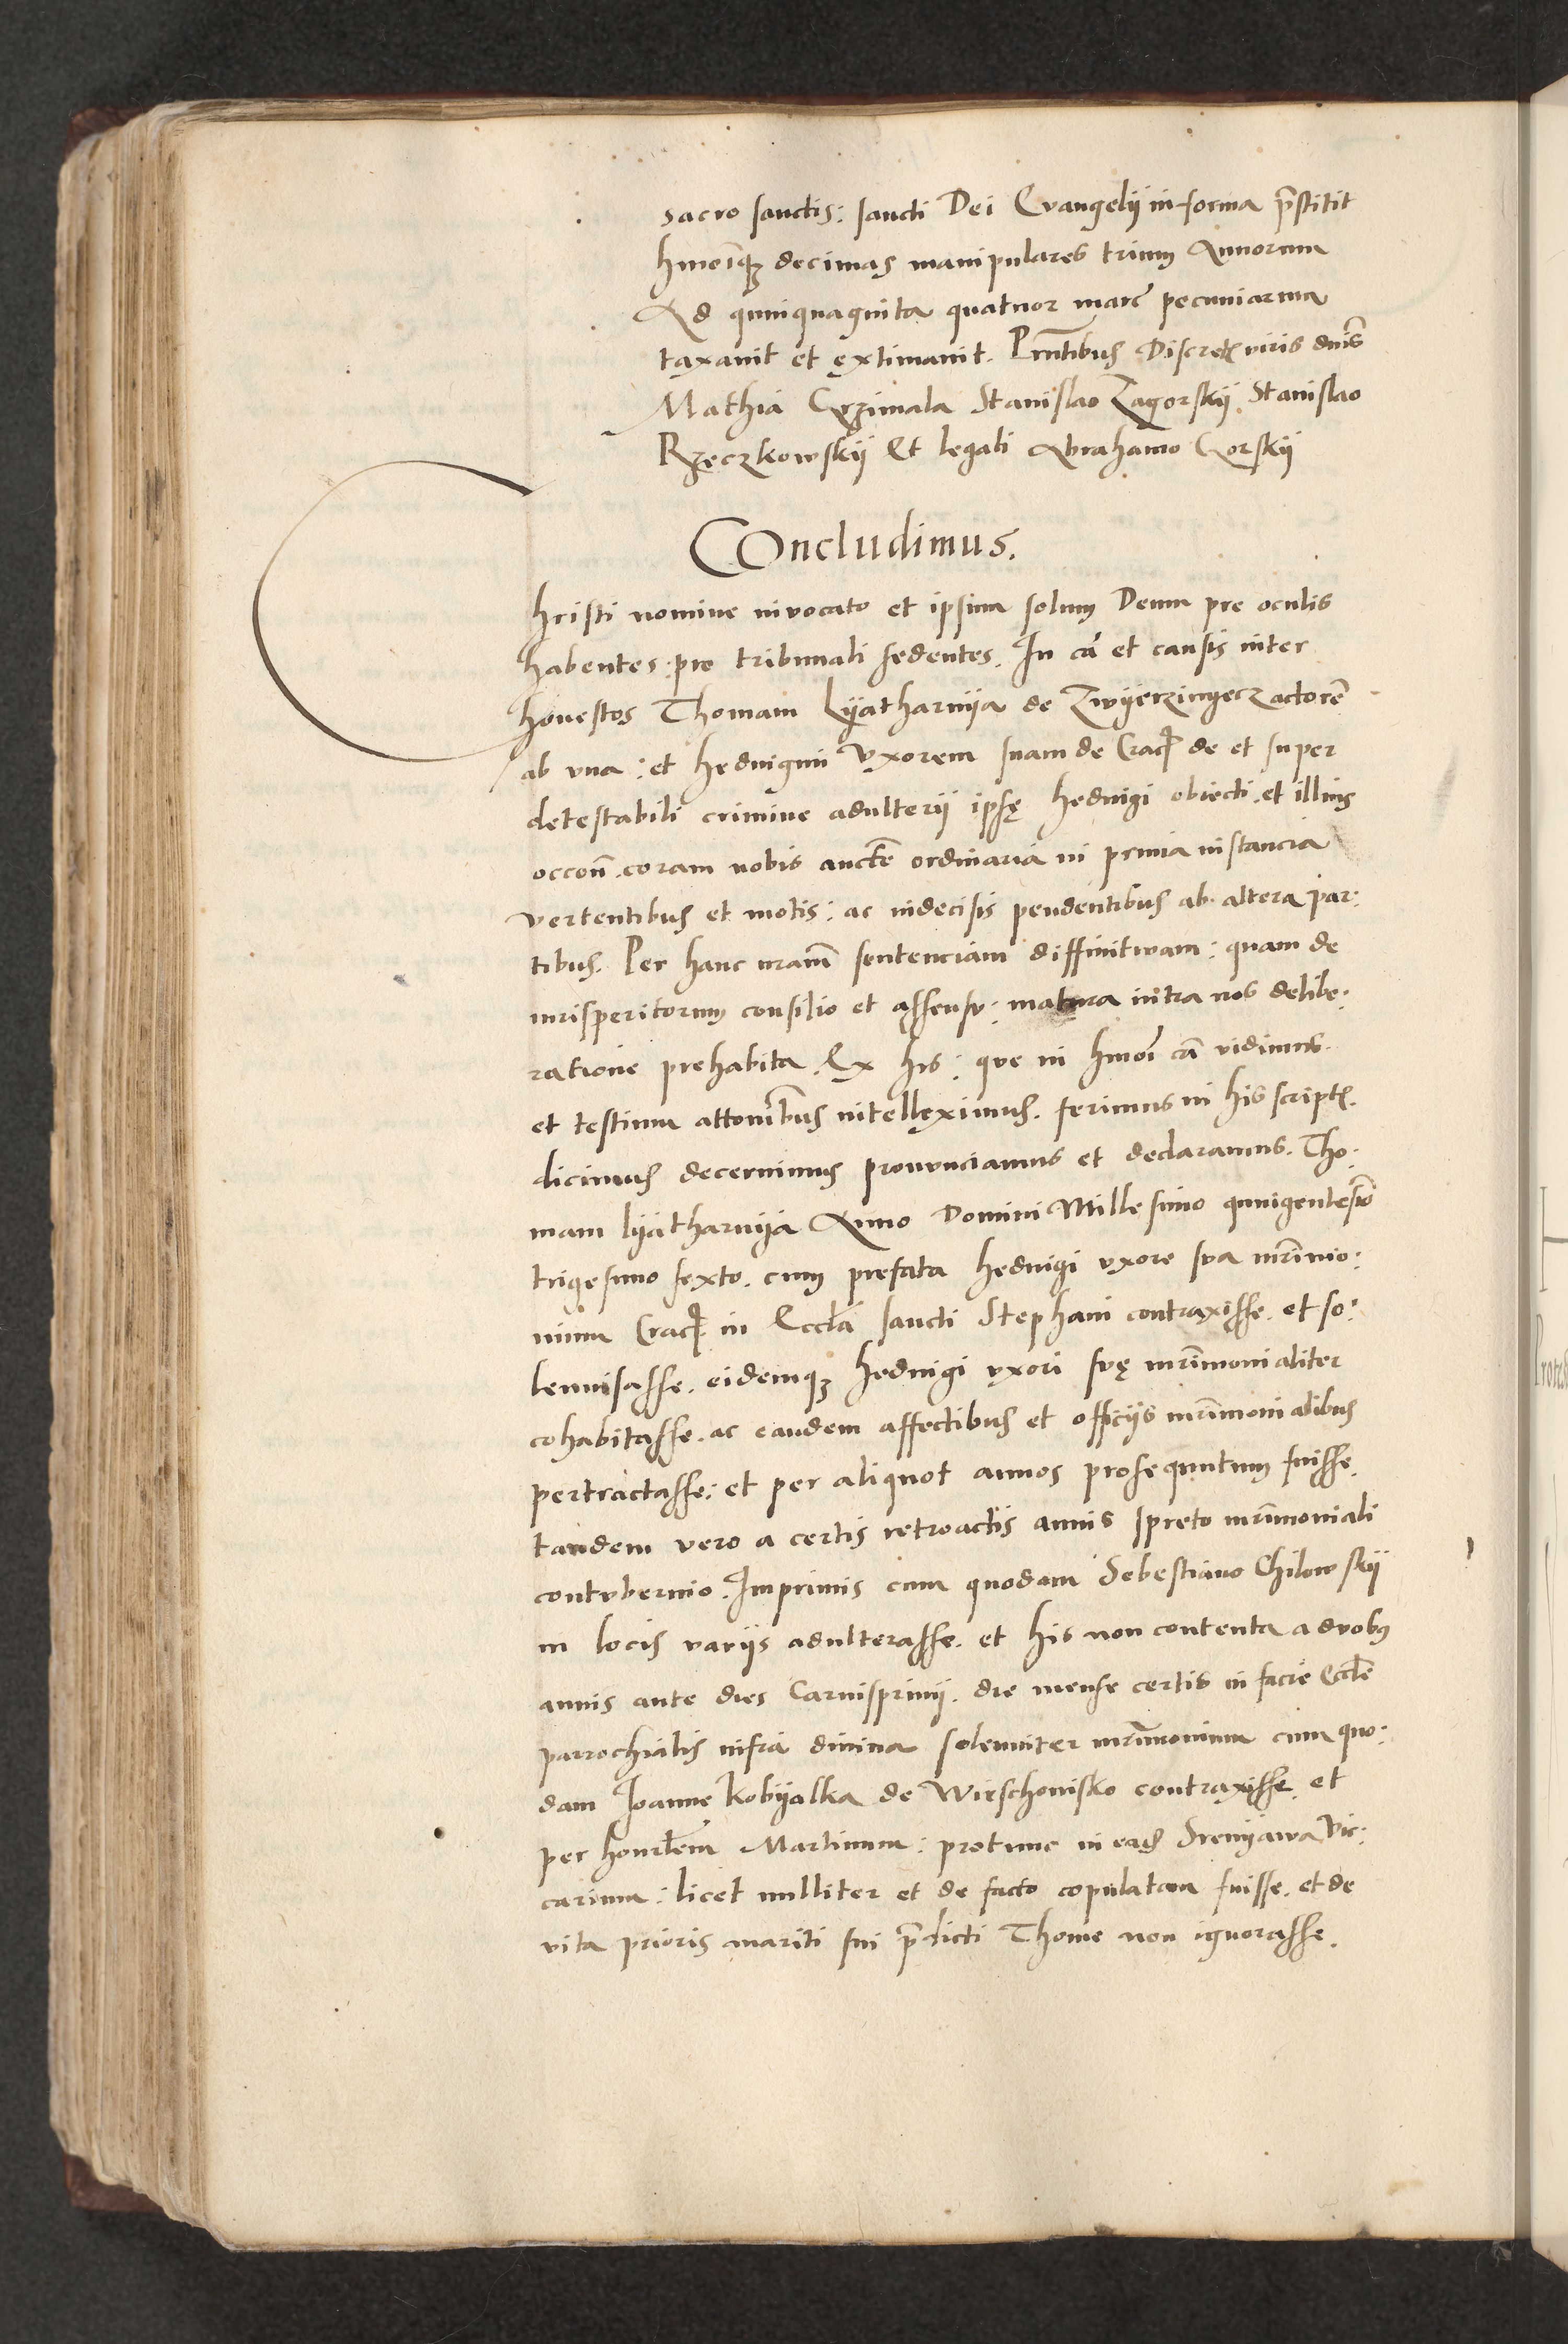 sacro sanctis: sancti Dei Evangelij in forma p̄stitit
hmōiqꝫ decimas manipulares trium Annorum
Ad quinquaginta quatuor marc̄ pecuniarum
taxavit et ęxtimavit. Pn̄tibus Discretꝭ viris dn̄is
Mathia Grzimala Stanislao Zagorskij Stanislao
Rzęczkowskij Et legali Abrahamo Gorskij
COncludimus.
hristi nomine invocato et ipsum solum Deum pre oculis
habentes: pro tribunali sedentes. In cā et causis inter
honestos Thomam Lÿatharnÿa de Zwÿerzinyecz actorē
ab una: et hedvigim Uxorem suam de Crac̄ de et super
detestabili crimine adulterii ipsę hedvigi obiecti. et illius
occoñ. coram nobis aucte ordinaria in prima instancia
vertentibus et motis: ac indecisis pendentibus ab altera par:
tibus. Per hanc nram̄ sentenciam diffinitivam: quam de
iurisperitorum consilio et assensu: matura intra nos delibe:
ratione prehabita. Ex his: que in hmōi cā vidimus.
et testium attōnibus intellęximus. ferimus in his scriptꝭ.
dicimus decernimus pronunciamus et declaramus. Tho:
mam lÿatharnÿa Anno Domini Millesimo quingentesīo
trigesimo sexto. cum prefata hedvigi uxore sua mr̄imo:
nium Crac̄ in Eccl̄a sancti Stephani contraxisse. et so:
lennisasse. eidemqꝫ hedvigi uxori suę mr̄imonialiter
cohabitasse. ac eandem affectibus et officijs mr̄imonialibus
pertractasse: et per aliquot annos prosequutum fuisse.
tandem vero a certis retroactis annis spreto mr̄imoniali
contubernio. Imprimis cum quodam Sebestiano Chilowskij
in locis varijs adulterasse. et his non contenta a duobꝰ
annis ante dies Carnisprivij. die mense certis in facie Eccl̄e
parrochialis infra divina solenniter mr̄imonium cum quo:
dam Joanne Kobÿalka de Wirschonisko contraxisse. et
per honrl̄em Martinum: protunc in eadꝭ Sreniawa Vic:
carium: licet nulliter et de facto copulatam fuisse. et de
vita prioris mariti sui p̄dicti Thome non ignorasse.